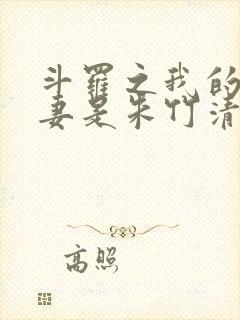 斗罗之我的
妻是朱竹清
高照